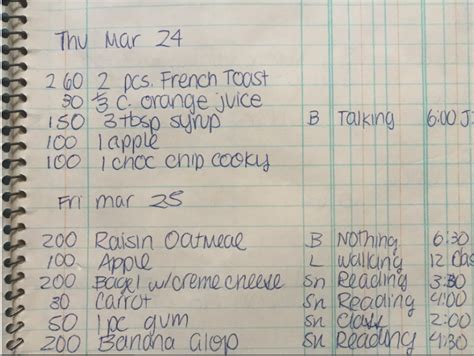 Thu Mar 24
260 2 pcs. French Toast
30 ⅓ c. orange juice
150 3 tbsp syrup B Talking 6:00
100 1 apple
100 1 choc chip cooky
Fri mar 25
200 Raisin Oatmeal B Nothing 6:30
100 Apple L walking 12
200 Bagel w/creme cheese Sn Reading 3:30
30 carrot Sn Reading 4:00
50 1 pc gum Sn Class 2:00
200 Banana Sn Reading 4:30